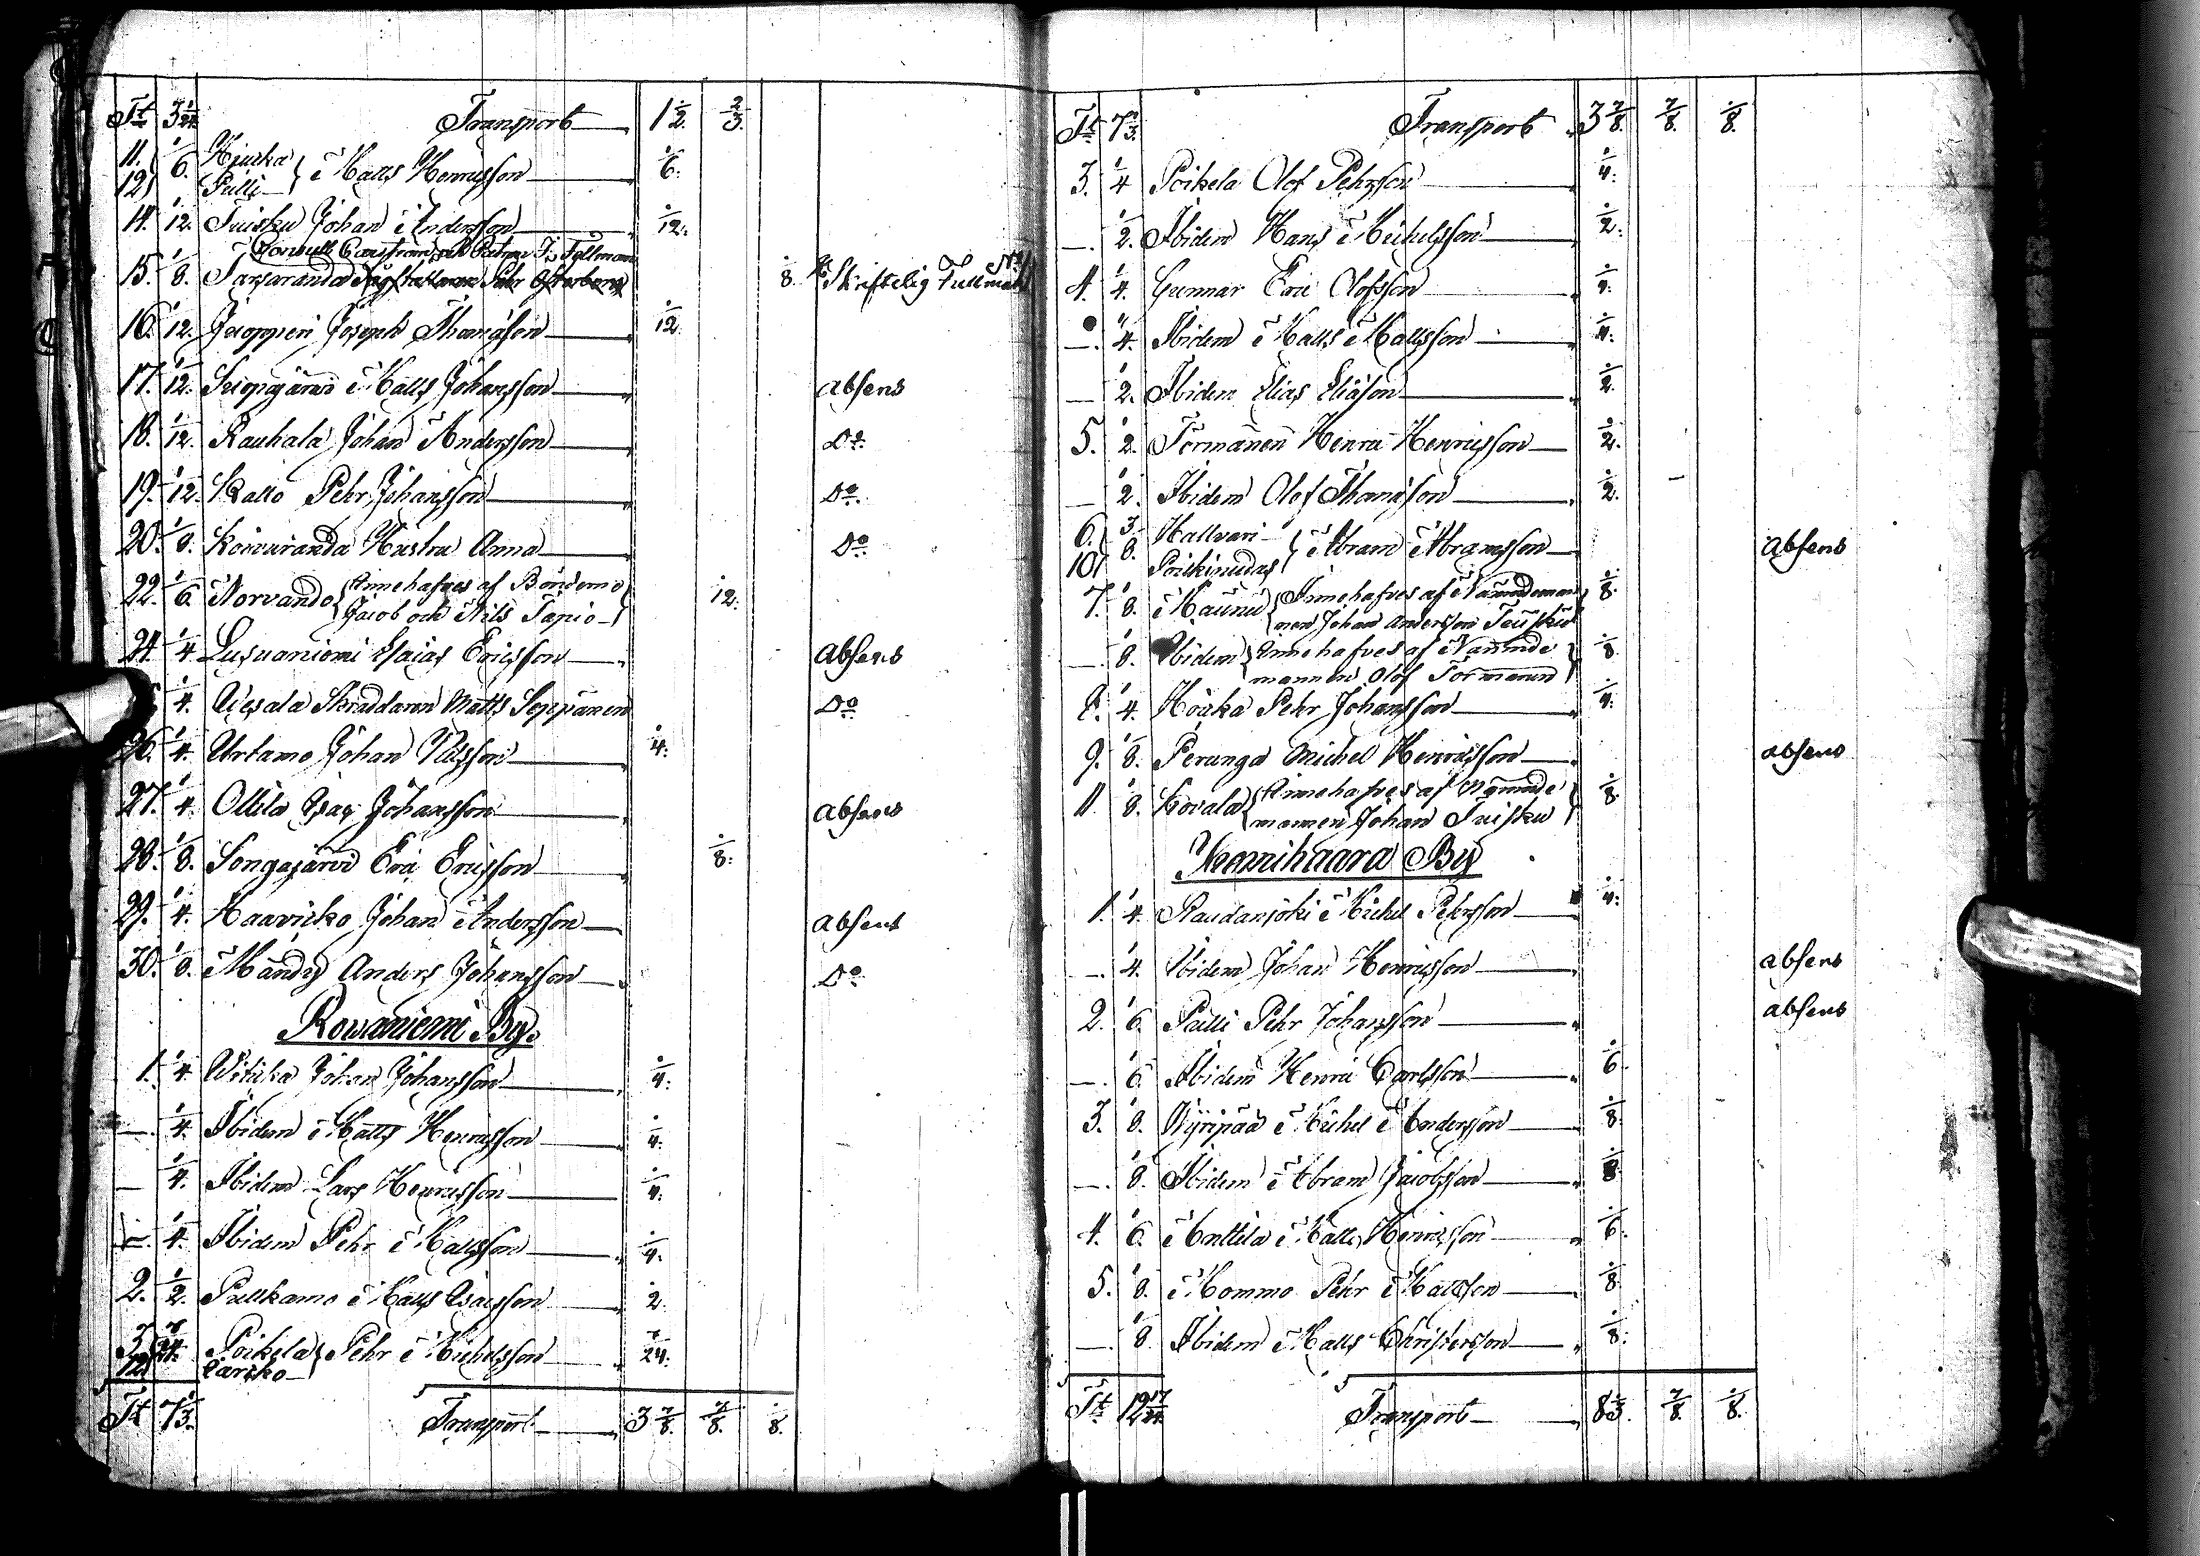 Tt 3 1/24 Transport 1 1/2 2/3
11. 12 1/6. Hiuka Pulli Matts Henricsson 1/6.
14. 1/12. Tuisku Johan Andersson 1/12.
15. 1/8. Tarsaranda Pehr Österberg 1/8. Skriftelig Fullmakt
16. 1/12. Jaoppien Joseph Thomasson 1/12.
17. 1/12. Matts Johansson absens
18. 1/12. Rauhala Johan Andersson Do
19. 1/12. Kallo Pehr Johansson Do
20. 1/8. Koivuranda Hustru Anna Do
22. 1/6. Norvando Innehafves af Bönderne Jacob och Nils Tapio 1/12.
24. 1/4 Lusuaniemi Esaias Ericsson absens
1/4. Uiesala Skräddaren Matts Seppänen Do
26. 1/4. Urtamo Johan Nilsson 1/4.
27. 1/4. Ollila Isac Johansson absens
28. 1/8. Songajärvi Eric Ericsson 1/8.
29. 1/4. Haavicko Johan Andersson absent
30. 1/8. Mändy Anders Johansson Do
Rowaniemi By.
1. 1/4. Witicka Johan Johansson 1/4.
—. 1/4. Ibidem Matts Henricsson 1/4.
— 1/4. Ibidem Lars Henricsson 1/4.
—. 1/4. Ibidem Pehr Mattsson 1/4.
2. 1/2. Pulkamo Matts Isacsson 1/2.
3. 12 7/24. Poikela Carsko Pehr Michelsson 7/24.
Tt 7 1/3. Transport 3 7/8. 7/8. 1/8.
Tt 7 1/3. Transport 3 7/8. 7/8. 1/8.
3. 1/4 Poikela Olof Pehrsson 1/4.
—. 1/2. Ibidem Hans Michelsson 1/2.
4. 1/4. Gunnar Eric Olofsson 1/4.
—. 1/4. Ibidem Matts Mattsson 1/4.
— 1/2. Ibidem Elias Eliasson 1/2.
5. 1/2. Törmänen Henric Henricsson 1/2.
— 1/2. Ibidem Olof Thomasson 1/2.
6. 10 3/8. Hallvari Abram Abramsson absens
7. 1/8. Maunu Innehafves af Nämndeman nen Johan Andersson Tuisku 1/8.
—. 1/8. Ibidem Innehafves af Nämnde mannen Olof Törmänen 1/8.
8. 1/4. Höicka Pehr Johansson 1/4.
9. 1/8. Peranga Michel Henricsson absens
11. 1/8. Kovala Innehafves af Nämnde mannen Johan Tuisku 1/8.
Kemihaara By
1. 1/4. Raudanjoki Michel Pehrsson 1/4.
—. 1/4. Ibidem Johan Henricsson absens
2. 1/6. Pulli Pehr Johansson absens
—. 1/6. Ibidem Henric Carlsson 1/6.
3. 1/8. Nyripää Michel Andersson 1/8.
—. 1/8. Ibidem Abram Jacobsson 1/8
4. 1/6. Anttila Matts Henricsson 1/6.
5. 1/8. Mommo Pehr Mattsson 1/8.
—. 1/8. Ibidem Matts Christersson 1/8.
Tt 12 17/24 Transport 8 1/3. 7/8. 1/8.